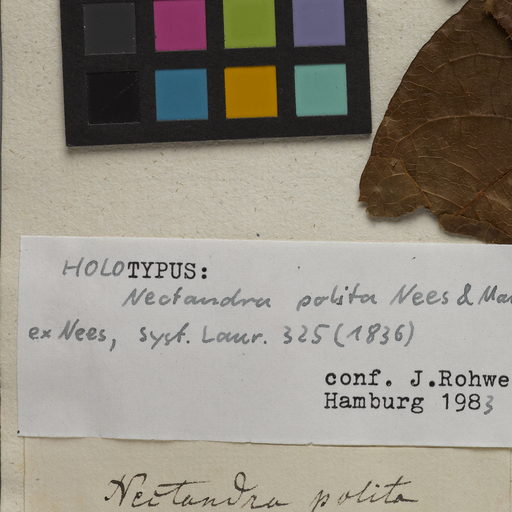 HOLOTYPUS:
Nectandra polita Nees & Mar
ex Nees, syst. Laur. 325 (1836)
conf. J.Rohwe
Hamburg 1983
Nectandra polita